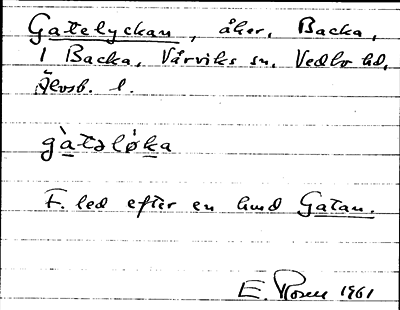 Gatelyckan, åker, Backa,
1 Backa, Vårviks sn, Vedbo hd,
Älvsb. l.
gàtəlø̀ka
F. led efter en hund Gatan.
E. Rosen 1961